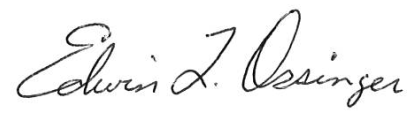 Edwin L. Ossinger